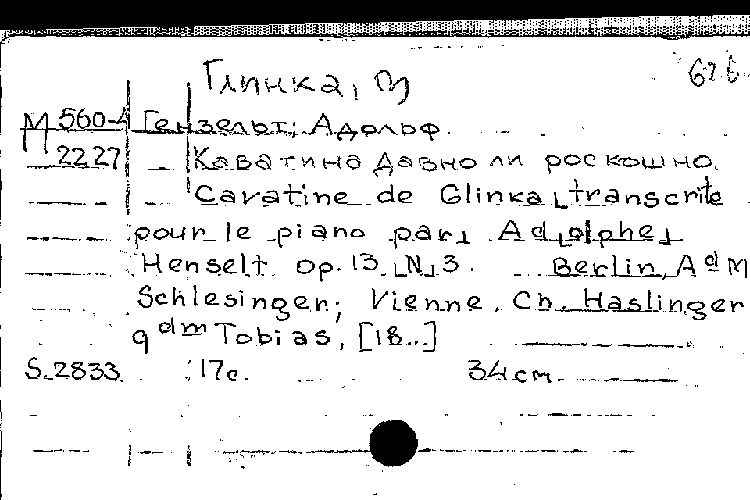 Глинка, М
626
М 560-4 Гензельт, Адольф.
2227 Каватина давно ли роскошно.
Cavatine de Glinka, transcrite
pour le piano par Adolphe
Henselt Op. 13 N 3. Berlin, Ad M
Schlesinger; Vienne, Ch. Haslinger
qdm Tobias, [18..]
S.2833. 17с. 34 cm.